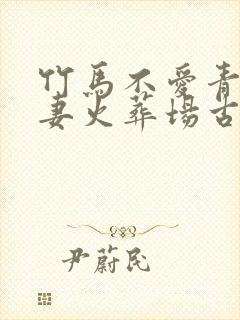 竹馬不愛青
妻火葬場古
尹蔚民